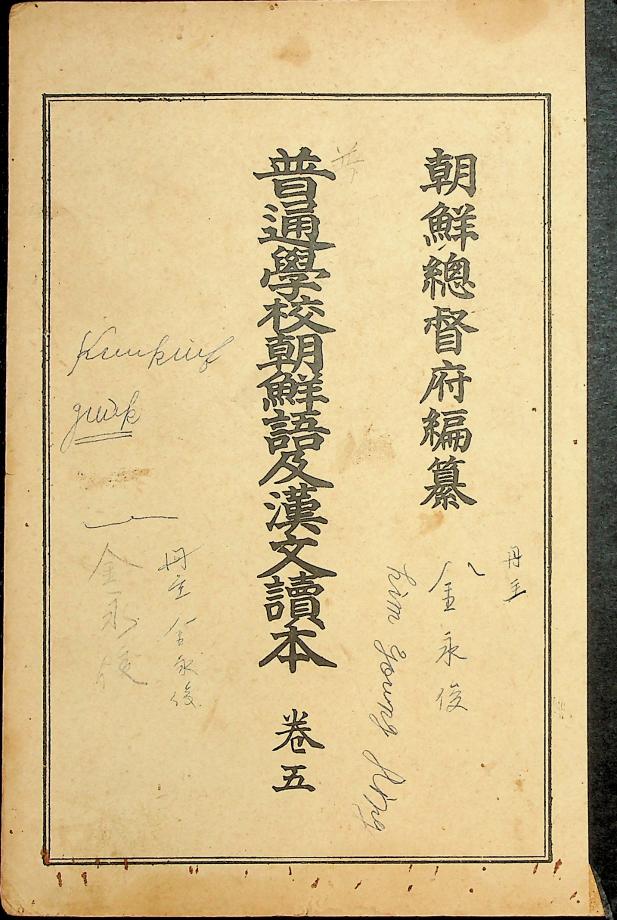 朝鮮總督府編纂
丹主
金永俊
him young
普通學校朝鮮語及漢文讀本 卷五
丹主 金永俊
金永俊